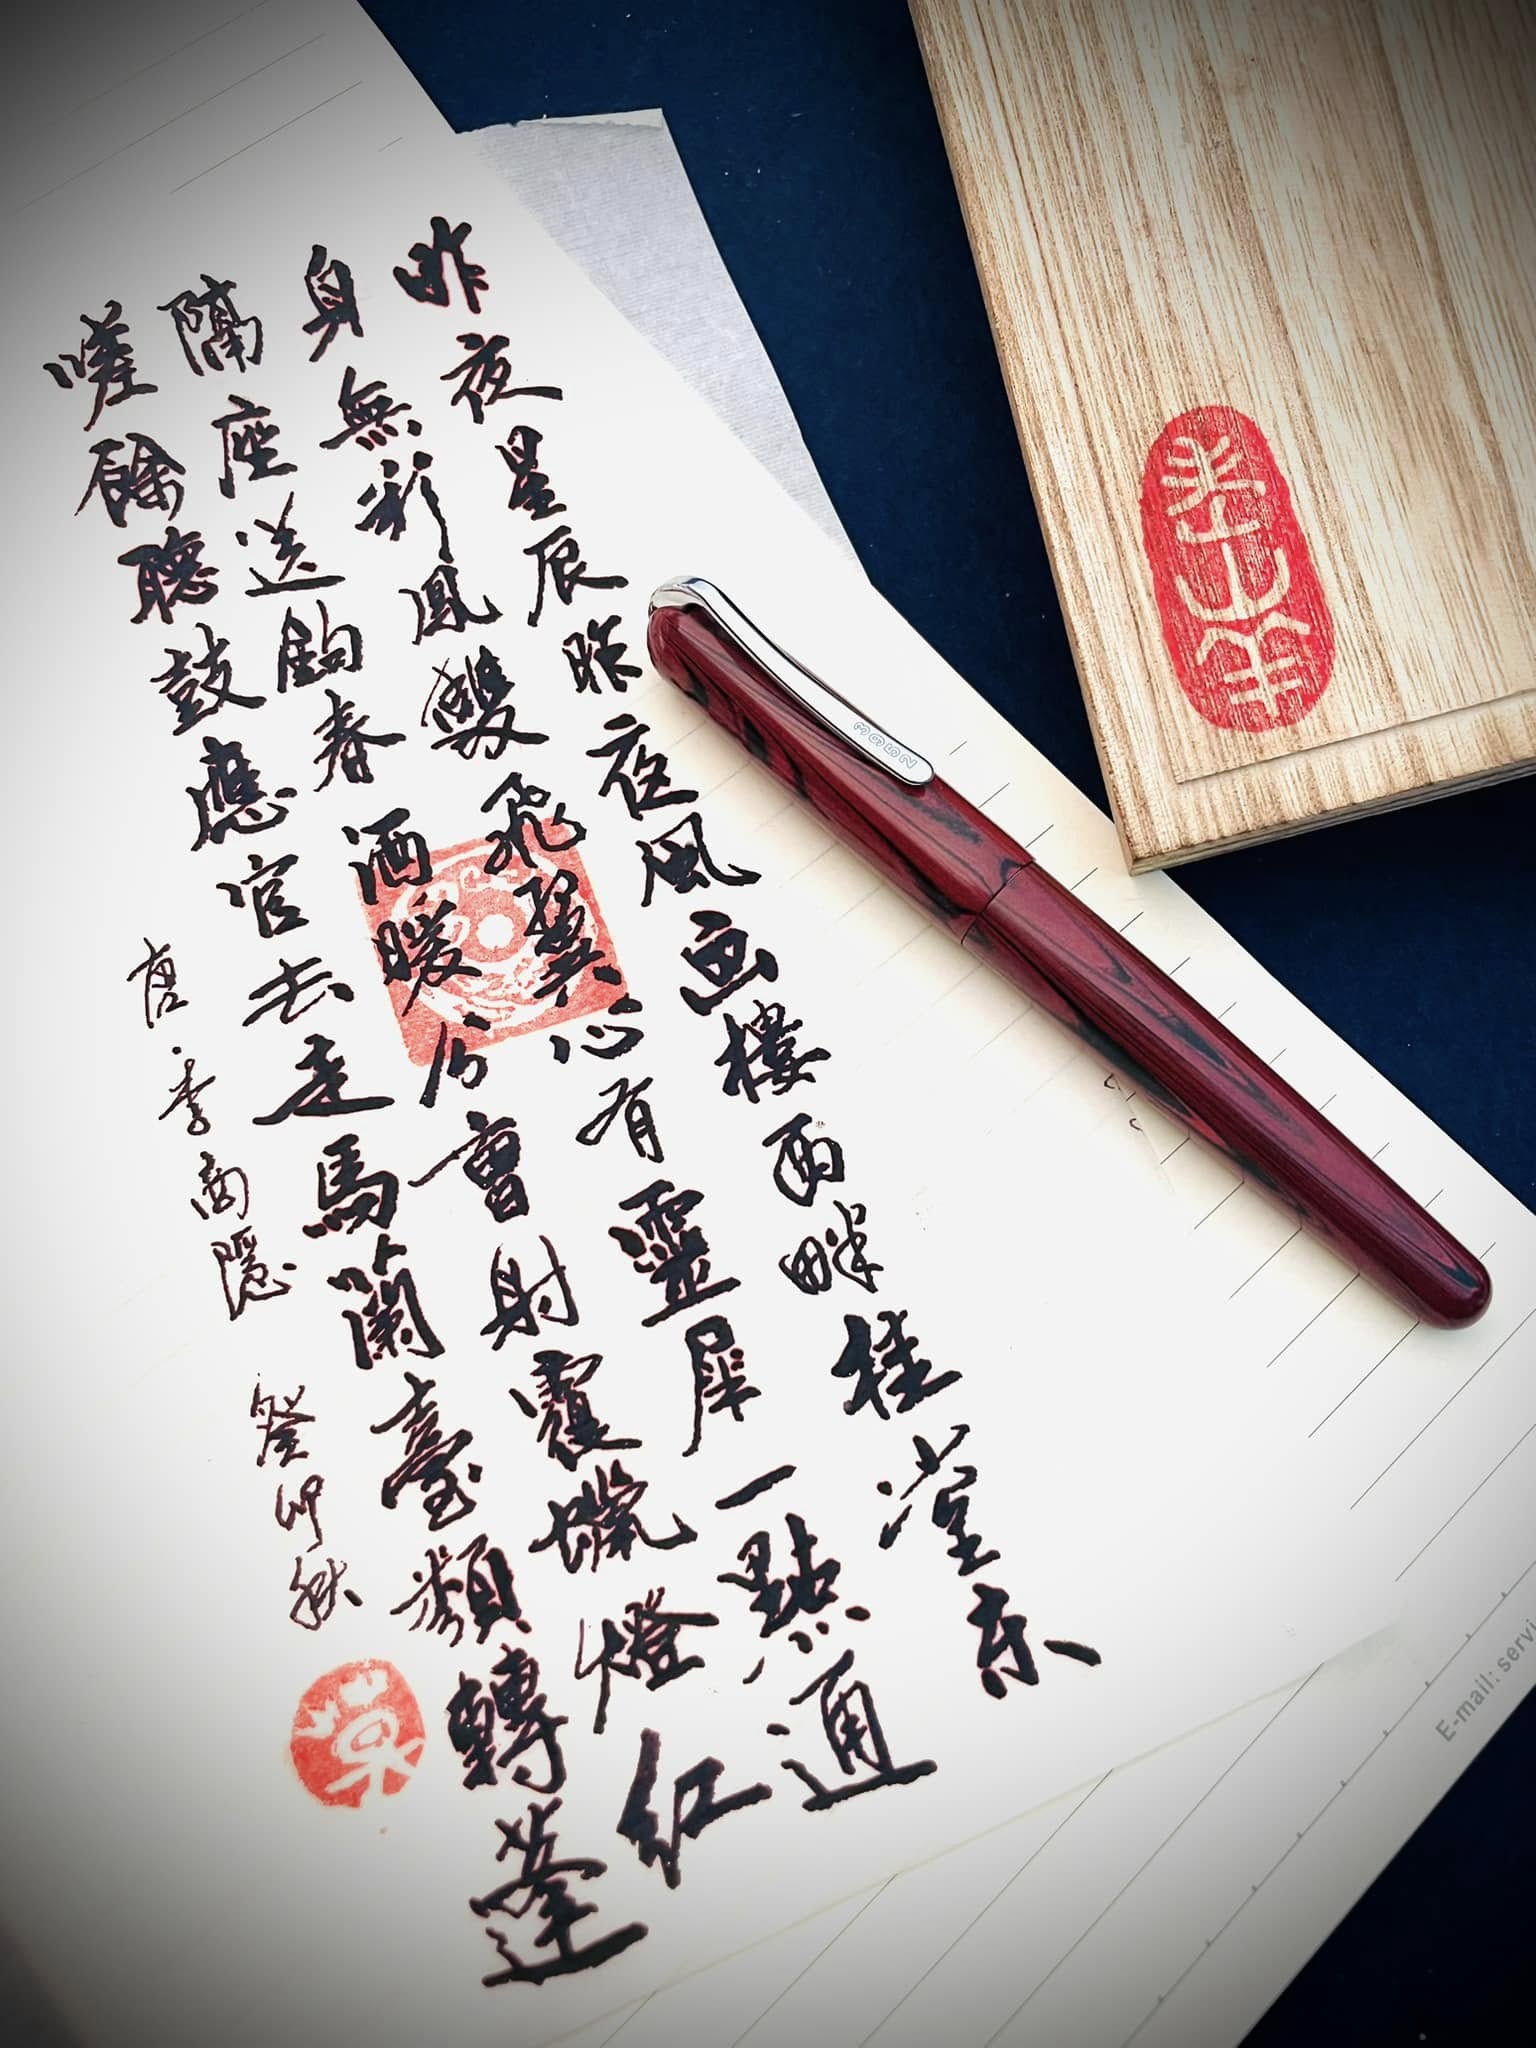 昨夜星辰昨夜風画樓西畔桂堂东
身無彩鳳雙飛翼心有靈犀一點通
隔座送鈎春酒暖分曹射覆蠟燈紅
嗟餘聽鼓應官去走馬蘭臺類轉蓬
唐·李商隱 癸卯秋
3952
山羊
E-mail: servi